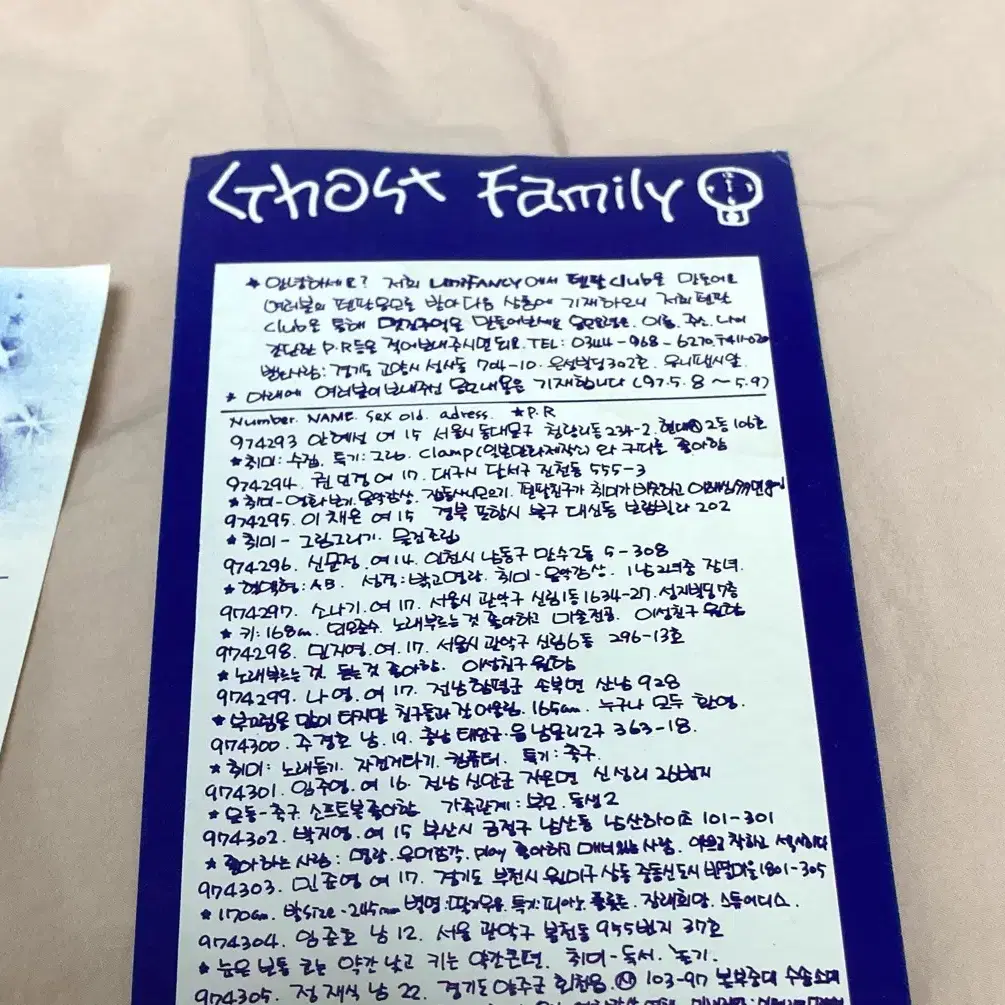 Ghost Family
* 안녕하세요? 저희 UNIFANCY에서 펜팔 Club을 만들어요
여러분의 펜팔응모를 받아 다음 상품에 기재하오니 저희 펜팔
Club을 통해 멋진추억을 만들어보세요 응모요령은. 이름. 주소. 나이
간단한 P.R등을 적어보내주시면 되요. TEL: 0344-968-6270
받는사람: 경기도 고양시 성사동 704-10. 은성빌딩 302호. 유니팬시앞.
* 아래에 여러분이 보내주신 응모내용을 기재합니다 (97.5.8 ~ 5.9)
Number. NAME. Sex old. adress. *P.R
974293 안혜선 여 15 서울시 동대문구 청량리동 234-2. 현대Ⓐ 2동 106호
* 취미: 수집. 특기: 그림. Clamp(일본만화제작소)와 구피를 좋아함
974294. 권민정 여 17. 대구시 달서구 진천동 555-3
* 취미-영화보기. 음악감상. 잡동사니모으기. 펜팔친구가 취미가 비슷하고
974295. 이채은 여 15 경북 포항시 북구 대신동 보림빌라 202
* 취미 - 그림그리기. 물건조립
974296. 신문정. 여 14. 인천시 남동구 만수2동 5-308
* 혈액형: AB. 성격: 밝고명랑. 취미-음악감상. 1남2녀중 장녀.
974297. 소나기. 여 17. 서울시 관악구 신림1동 1634-27. 성지빌딩 7층
* 키: 168cm. 외모준수. 노래부르는것 좋아하고 미술전공. 이성친구 원함
974298. 민지영. 여. 17. 서울시 관악구 신림6동 296-13호
* 노래부르는것. 듣는것 좋아함. 이성친구 원함
974299. 나영. 여 17. 전남 함평군 손불면 산남 928
* 부끄럼을 많이 타지만 친구들과 잘 어울림. 165cm. 누구나 모두 환영.
974300. 주경호 남. 19. 충남 태안군·읍 남문리2구 363-18.
* 취미: 노래듣기. 자전거타기. 컴퓨터. 특기: 축구.
974301. 임주영. 여 16. 전남 신안군 자은면 신성리 26번지
* 운동-축구 소프트볼 좋아함 가족관계: 부모. 동생2
974302. 박지영. 여 15 부산시 금정구 남산동 남산하이츠 101-301
* 좋아하는 사람: 명랑. 유머감각. play 좋아하고 매너있는 사람.
974303. 민준영 여 17. 경기도 부천시 원미구 상동 중동신도시 반달마을 1801-305
* 170cm. 발size-245mm 별명: 딸기우유. 특기: 피아노. 플룻. 장래희망. 스튜어디스.
974304. 임준호 남 12. 서울 관악구 봉천동 955번지 37호
* 눈은 보통 코는 약간 낮고 키는 약간큰편. 취미-독서. 농기.
974305. 정재식 남 22. 경기도 양주군 회천읍 103-97 본부중대 수송소대